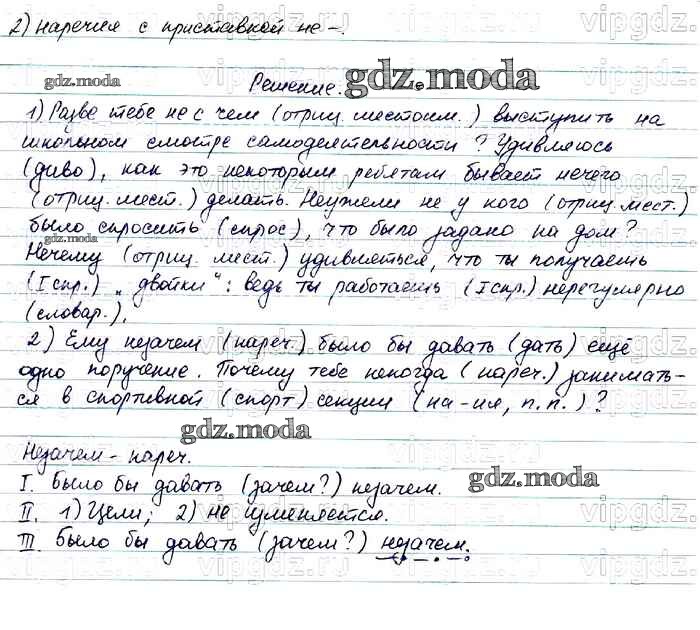 2) наречия с приставкой не-.
gdz.moda
Решение. gdz.moda
1) Разве тебе не с чем (отриц. местоим.) выступить на
школьном смотре самодеятельности? Удивляюсь
(диво), как это некоторым ребятам бывает нечего
(отриц. мест.) делать. Неужели не у кого (отриц. мест.)
было спросить (спрос), что было задано на дом?
gdz.moda
Нечему (отриц. мест.) удивляться, что ты получаешь
(I спр.) „двойки": ведь ты работаешь (I спр.) нерегулярно
(словар.).
2) Ему незачем (нареч.) было бы давать (дать) ещё
одно поручение. Почему тебе некогда (нареч.) занимать-
ся в спортивной (спорт) секции (на -ия, п.п.)?
gdz.moda
Незачем - нареч.
I. Было бы давать (зачем?) незачем.
gdz.moda
II. 1) Цели; 2) не изменяется.
III. Было бы давать (зачем?) незачем.